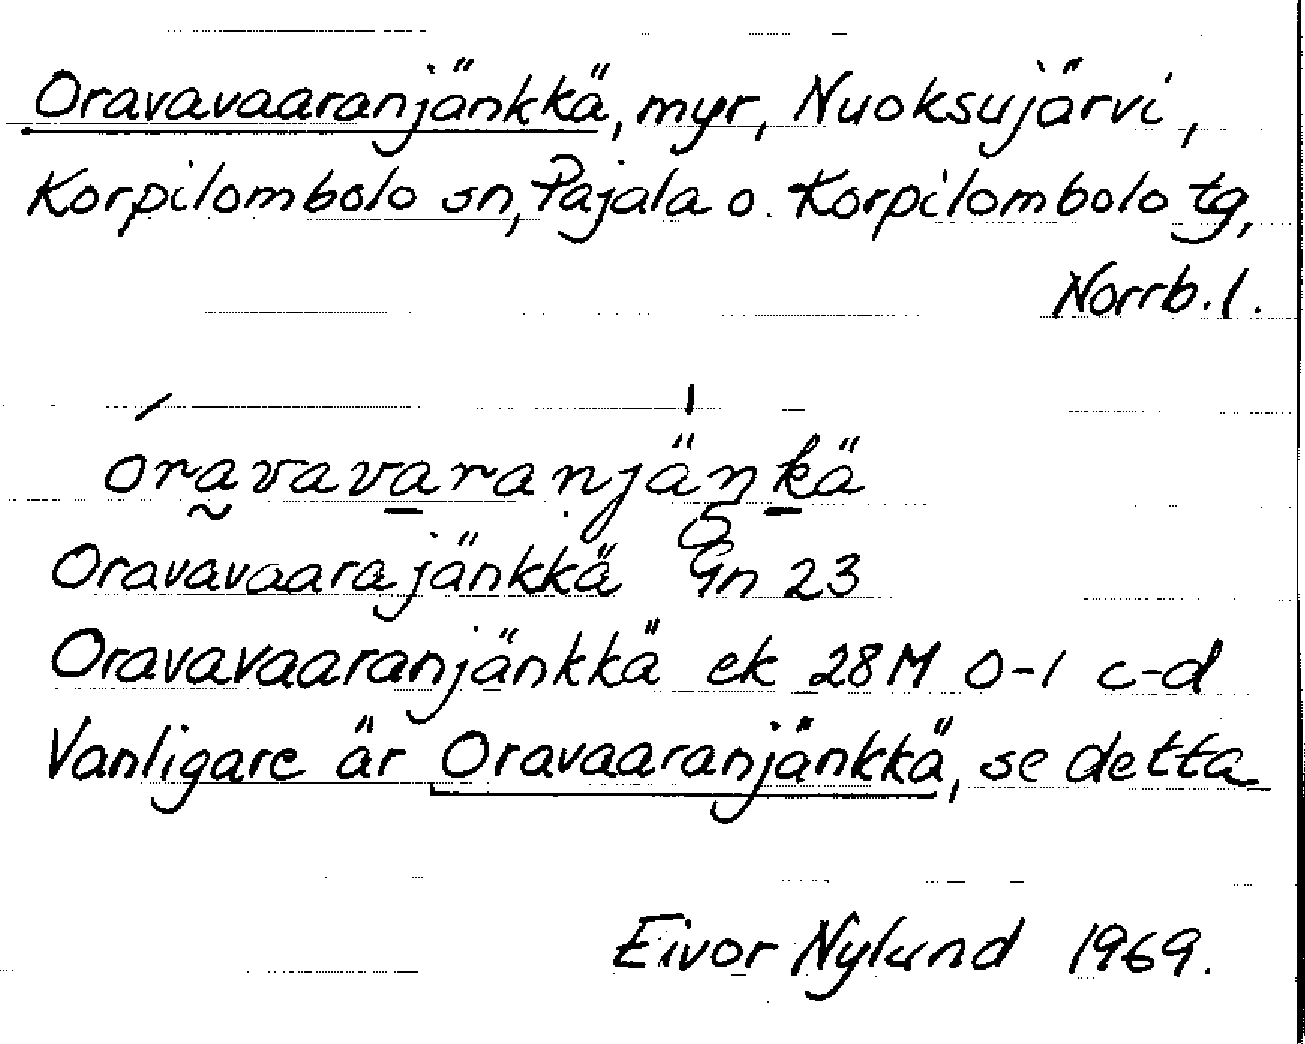 Oravavaaranjänkkä, myr, Nuoksujärvi,
Korpilombolo sn, Pajala o. Korpilombolo tg,
Norrb. l.
óra̰vava̱ranjä́nḵä
Oravavaarajänkkä Gn 23
Oravavaaranjänkkä ek 28M 0-1 c-d
Vanligare är Oravaaranjänkkä, se detta
Eivor Nylund 1969.